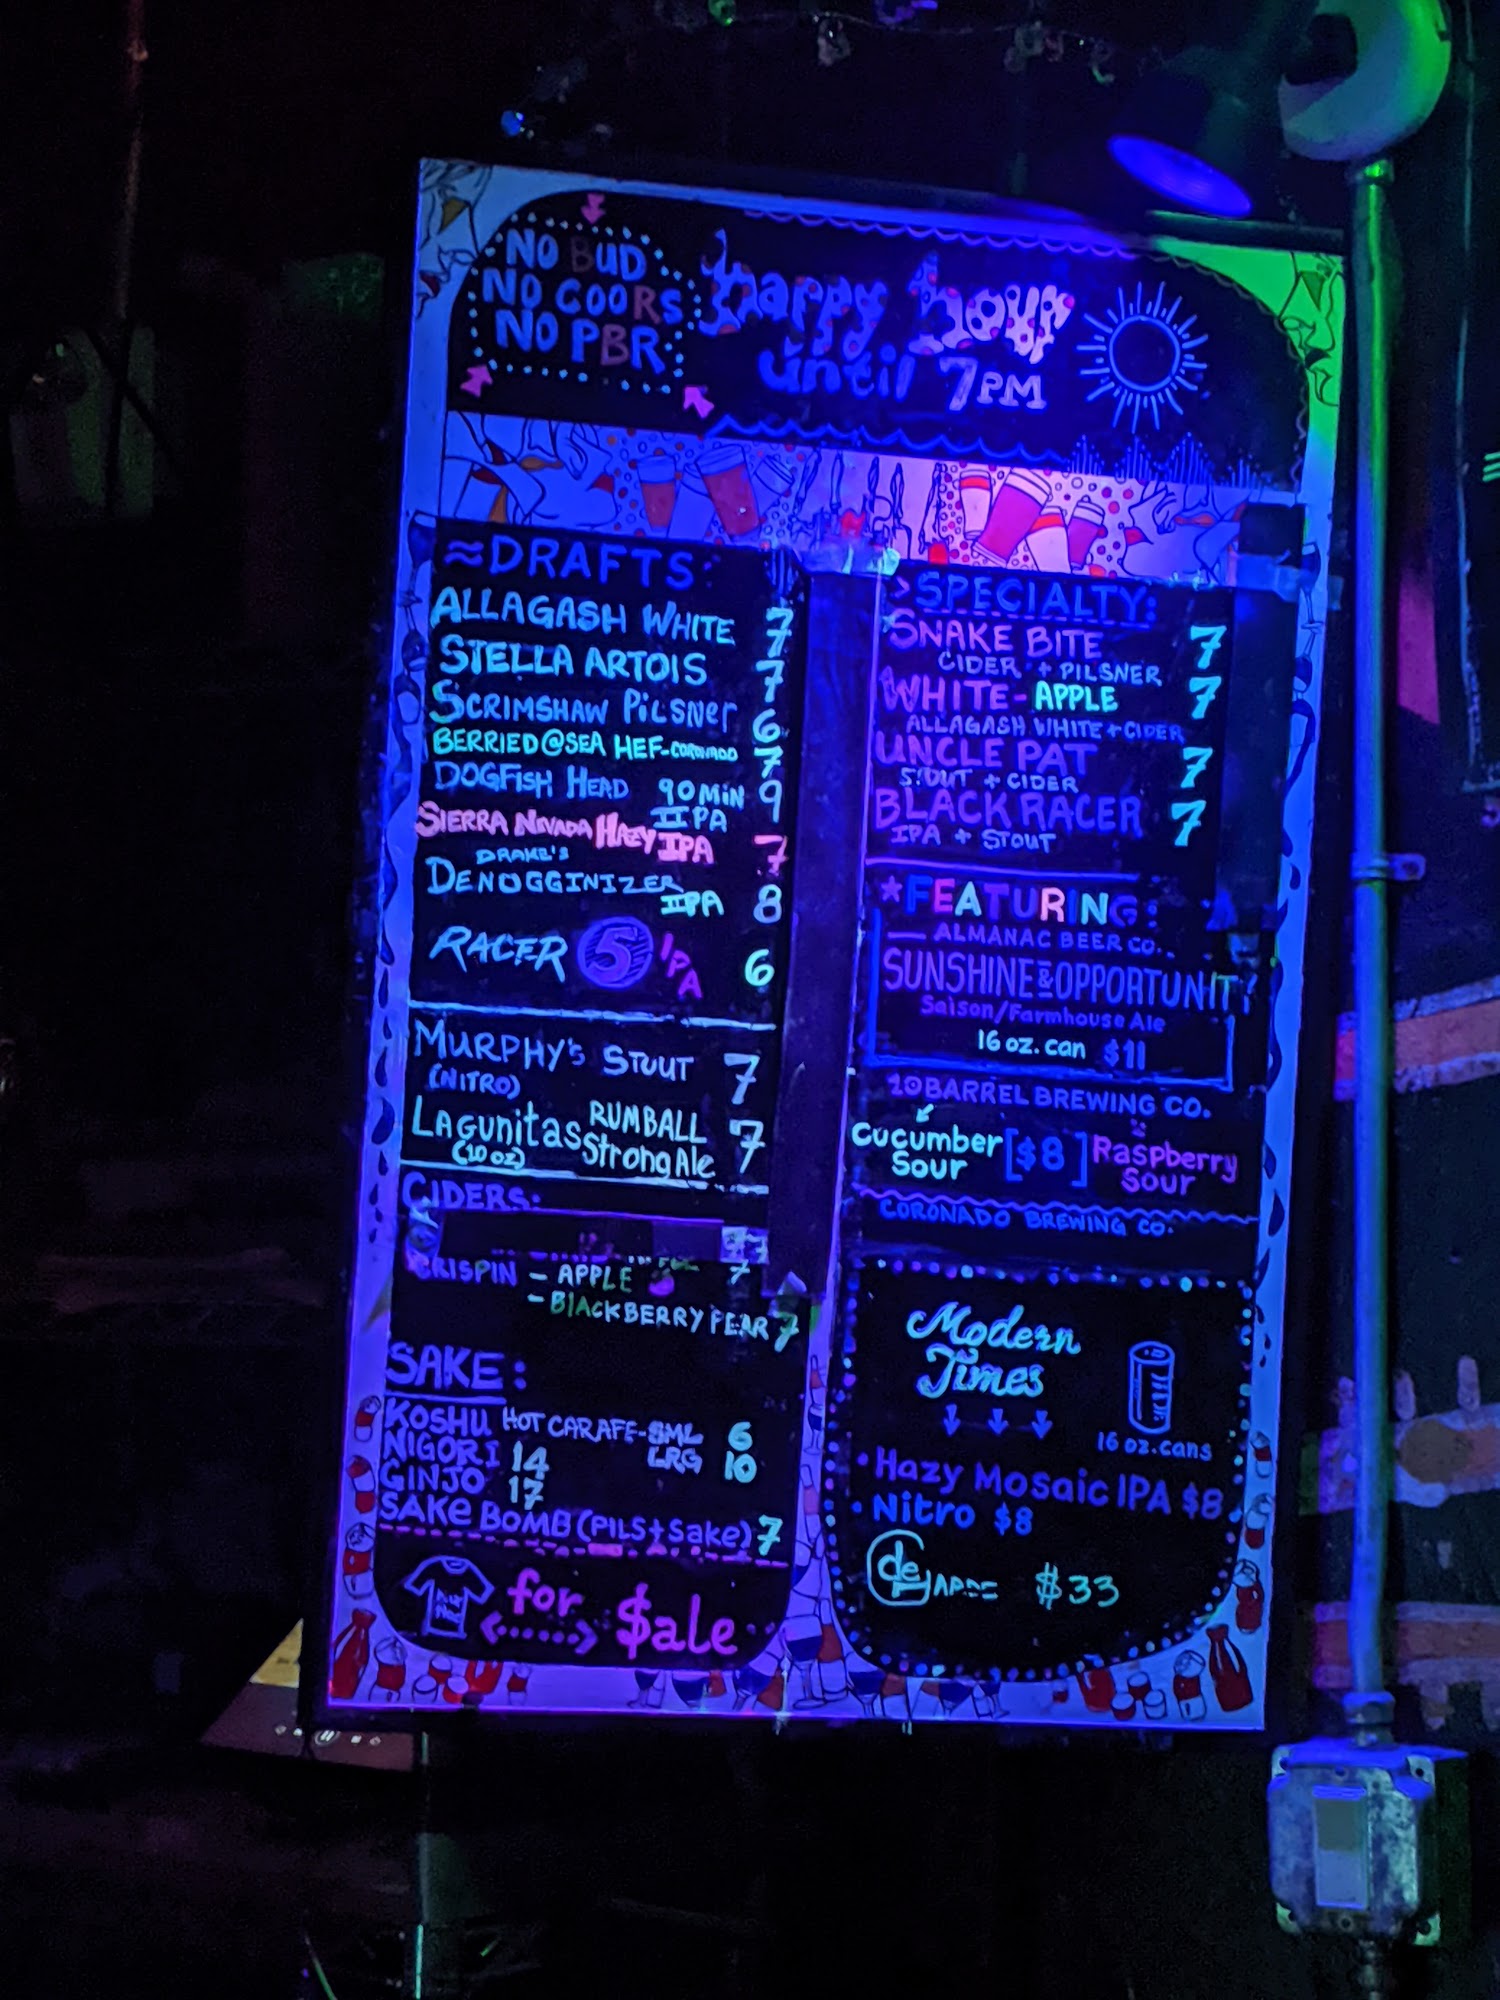 NO BUD
NO COORS
NO PBR
happy hour
until 7PM
≈DRAFTS:
ALLAGASH WHITE 7
STELLA ARTOIS 7
SCRIMSHAW PILSNER 6
BERRIED@SEA HEF-CORONADO 7
DOGFISH HEAD 90 MIN IIPA 9
SIERRA NEVADA HAZY IPA 7
DRAKE'S
DENOGGINIZER IIPA 8
RACER 5 IPA 6
MURPHY'S STOUT 7
(NITRO)
LAGUNITAS RUMBALL 7
(10 oz) Strong Ale
CIDERS:
CRISPIN - APPLE 7
- BLACKBERRY PEAR 7
SAKE:
KOSHU HOT CARAFE-SML 6
LRG 10
NIGORI 14
GINJO 17
SAKE BOMB (PILS+Sake) 7
for $ale
>SPECIALTY:
SNAKE BITE 7
CIDER + PILSNER
WHITE-APPLE 7
ALLAGASH WHITE + CIDER
UNCLE PAT 7
STOUT + CIDER
BLACK RACER 7
IPA + STOUT
*FEATURING:
— ALMANAC BEER CO.
SUNSHINE & OPPORTUNITY
Saison/Farmhouse Ale
16 oz. can $11
10 BARREL BREWING CO.
Cucumber Sour [$8] Raspberry Sour
CORONADO BREWING CO.
Modern
Times
16 oz. cans
• Hazy Mosaic IPA $8
• Nitro $8
de GARDE $33